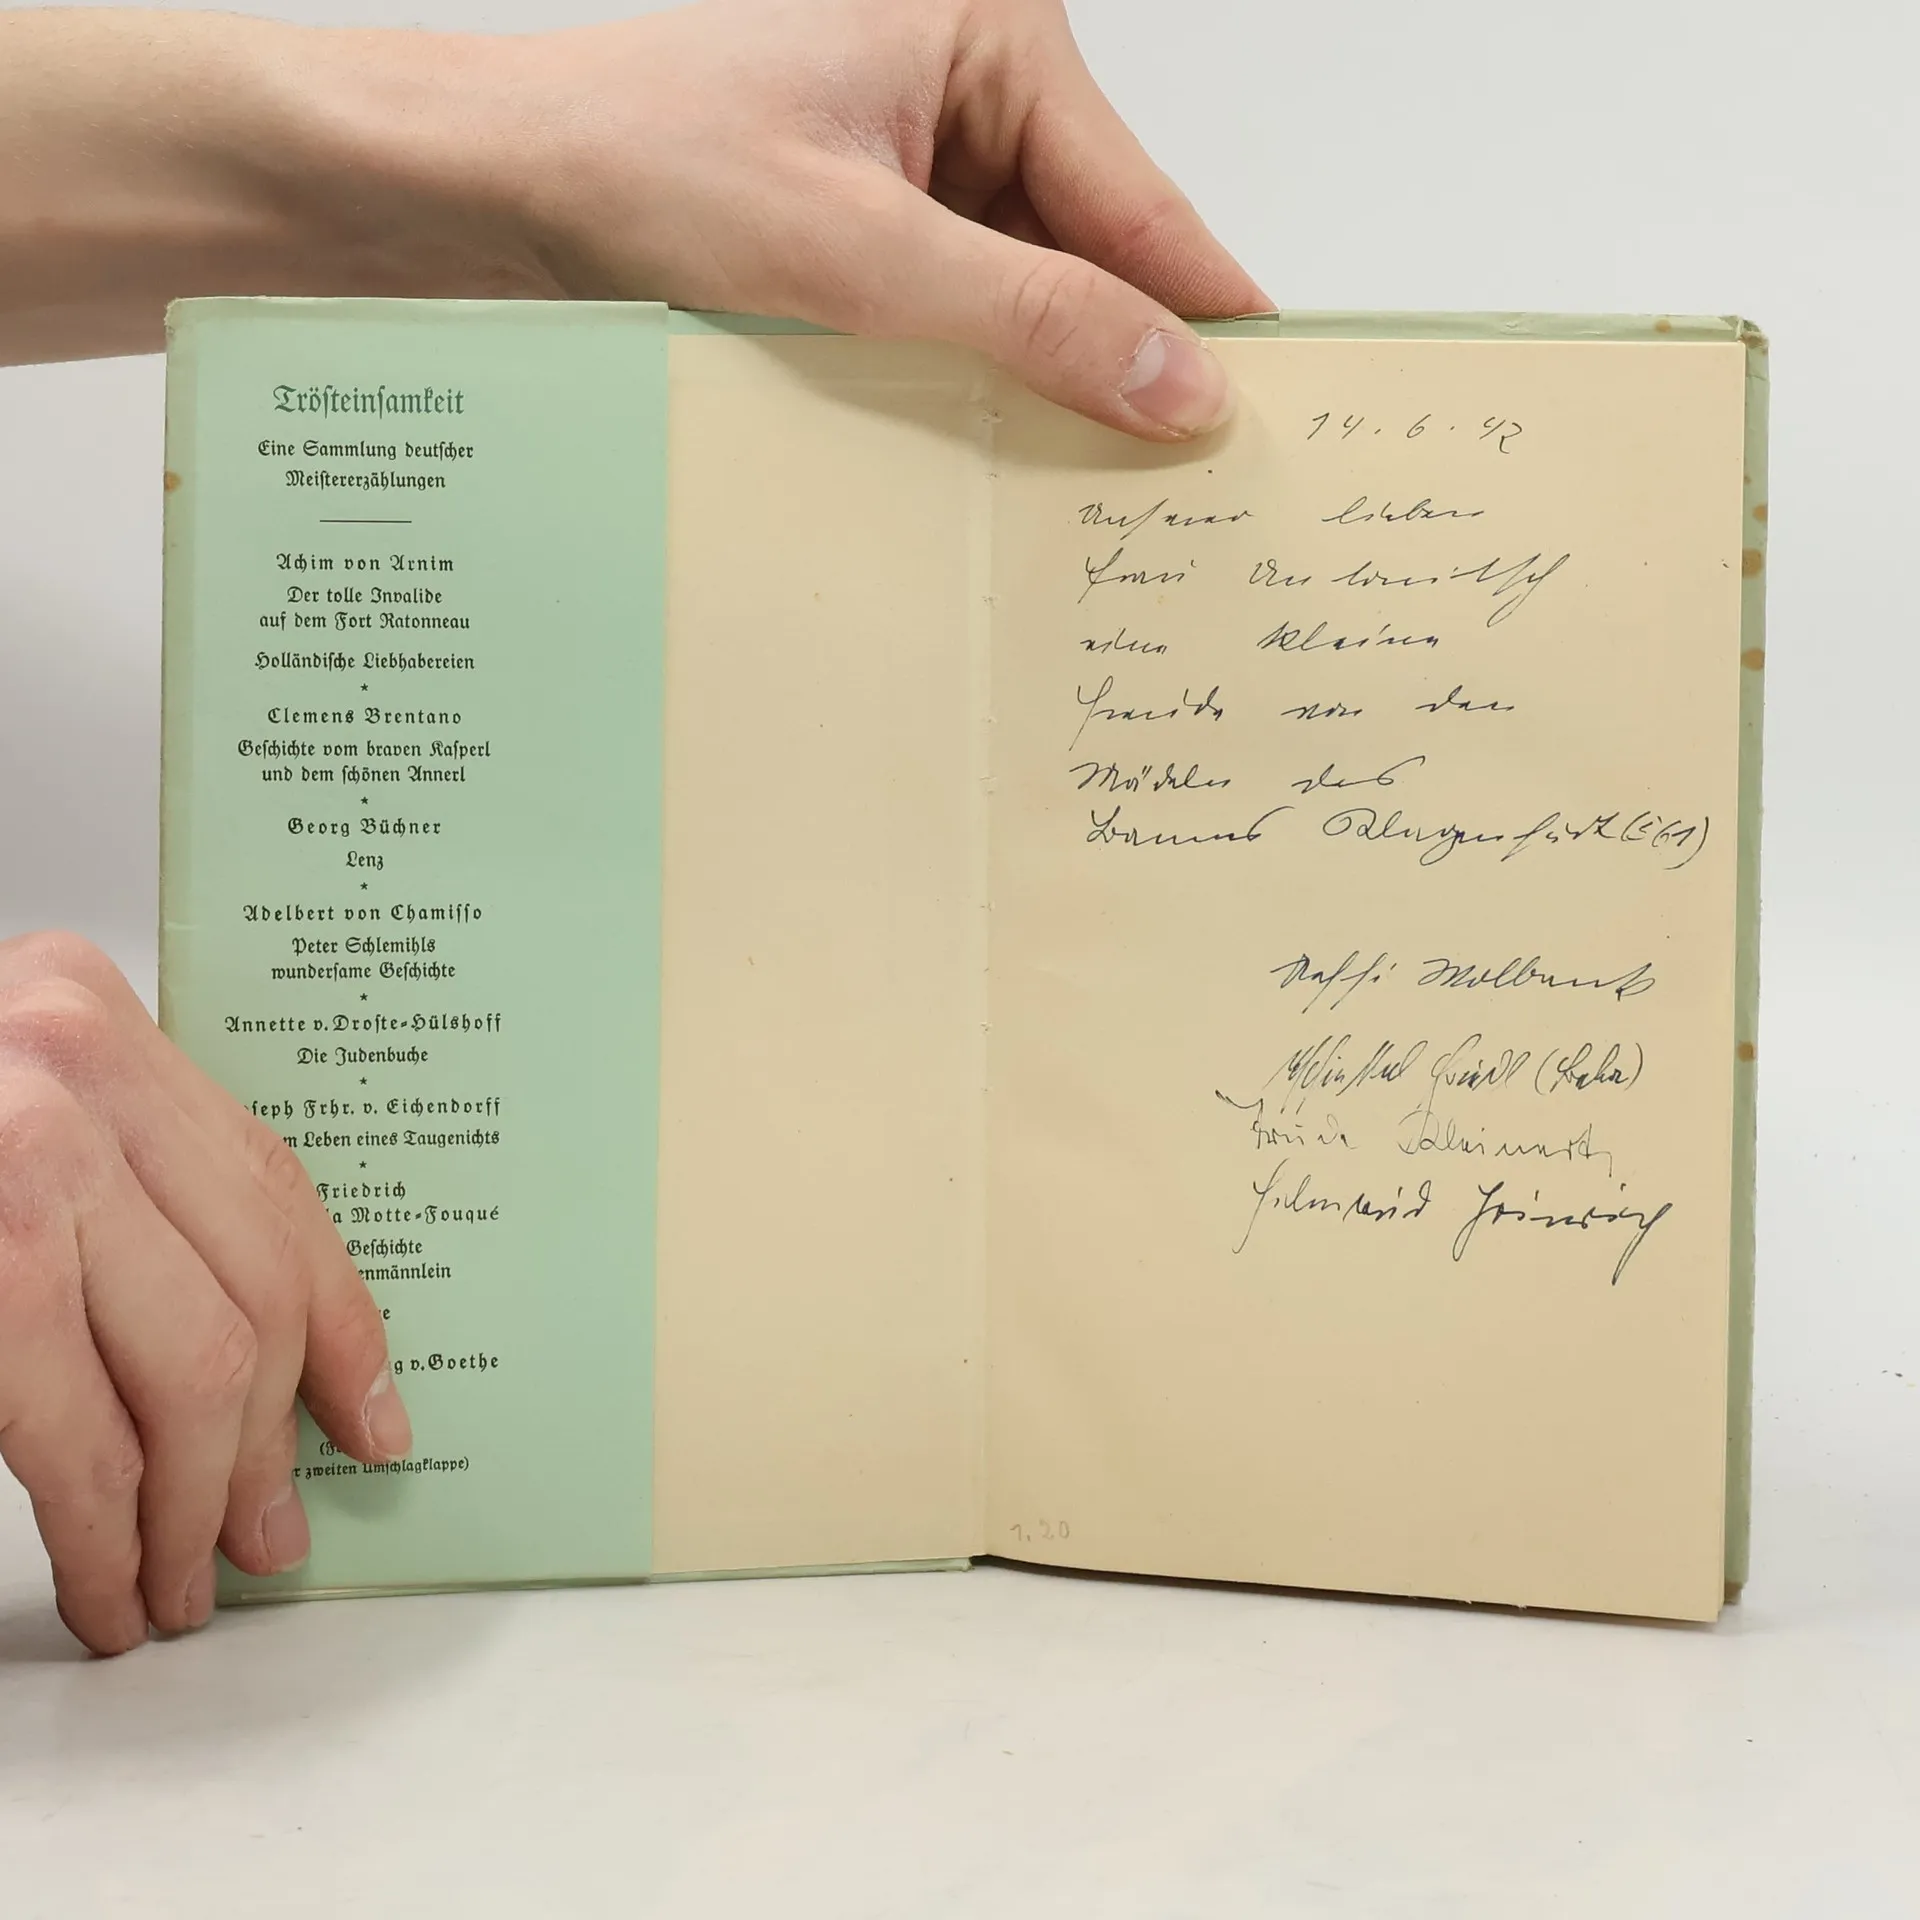 Trösteinsamkeit
Eine Sammlung deutscher
Meistererzählungen
Achim von Arnim
Der tolle Invalide
auf dem Fort Ratonneau
Holländische Liebhabereien
*
Clemens Brentano
Geschichte vom braven Kasperl
und dem schönen Annerl
*
Georg Büchner
Lenz
*
Adelbert von Chamisso
Peter Schlemihls
wundersame Geschichte
*
Annette v. Droste-Hülshoff
Die Judenbuche
*
seph Frhr. v. Eichendorff
m Leben eines Taugenichts
*
Friedrich
la Motte-Fouqué
Geschichte
enmännlein
e
g v. Goethe
r zweiten Umschlagklappe)
14. 6. 42
Unserer lieben
Frau
eine kleine
Freude von den
Mädeln des
Banns Klagenfurt
Friedl
Kleinert
Heinrich
1.20